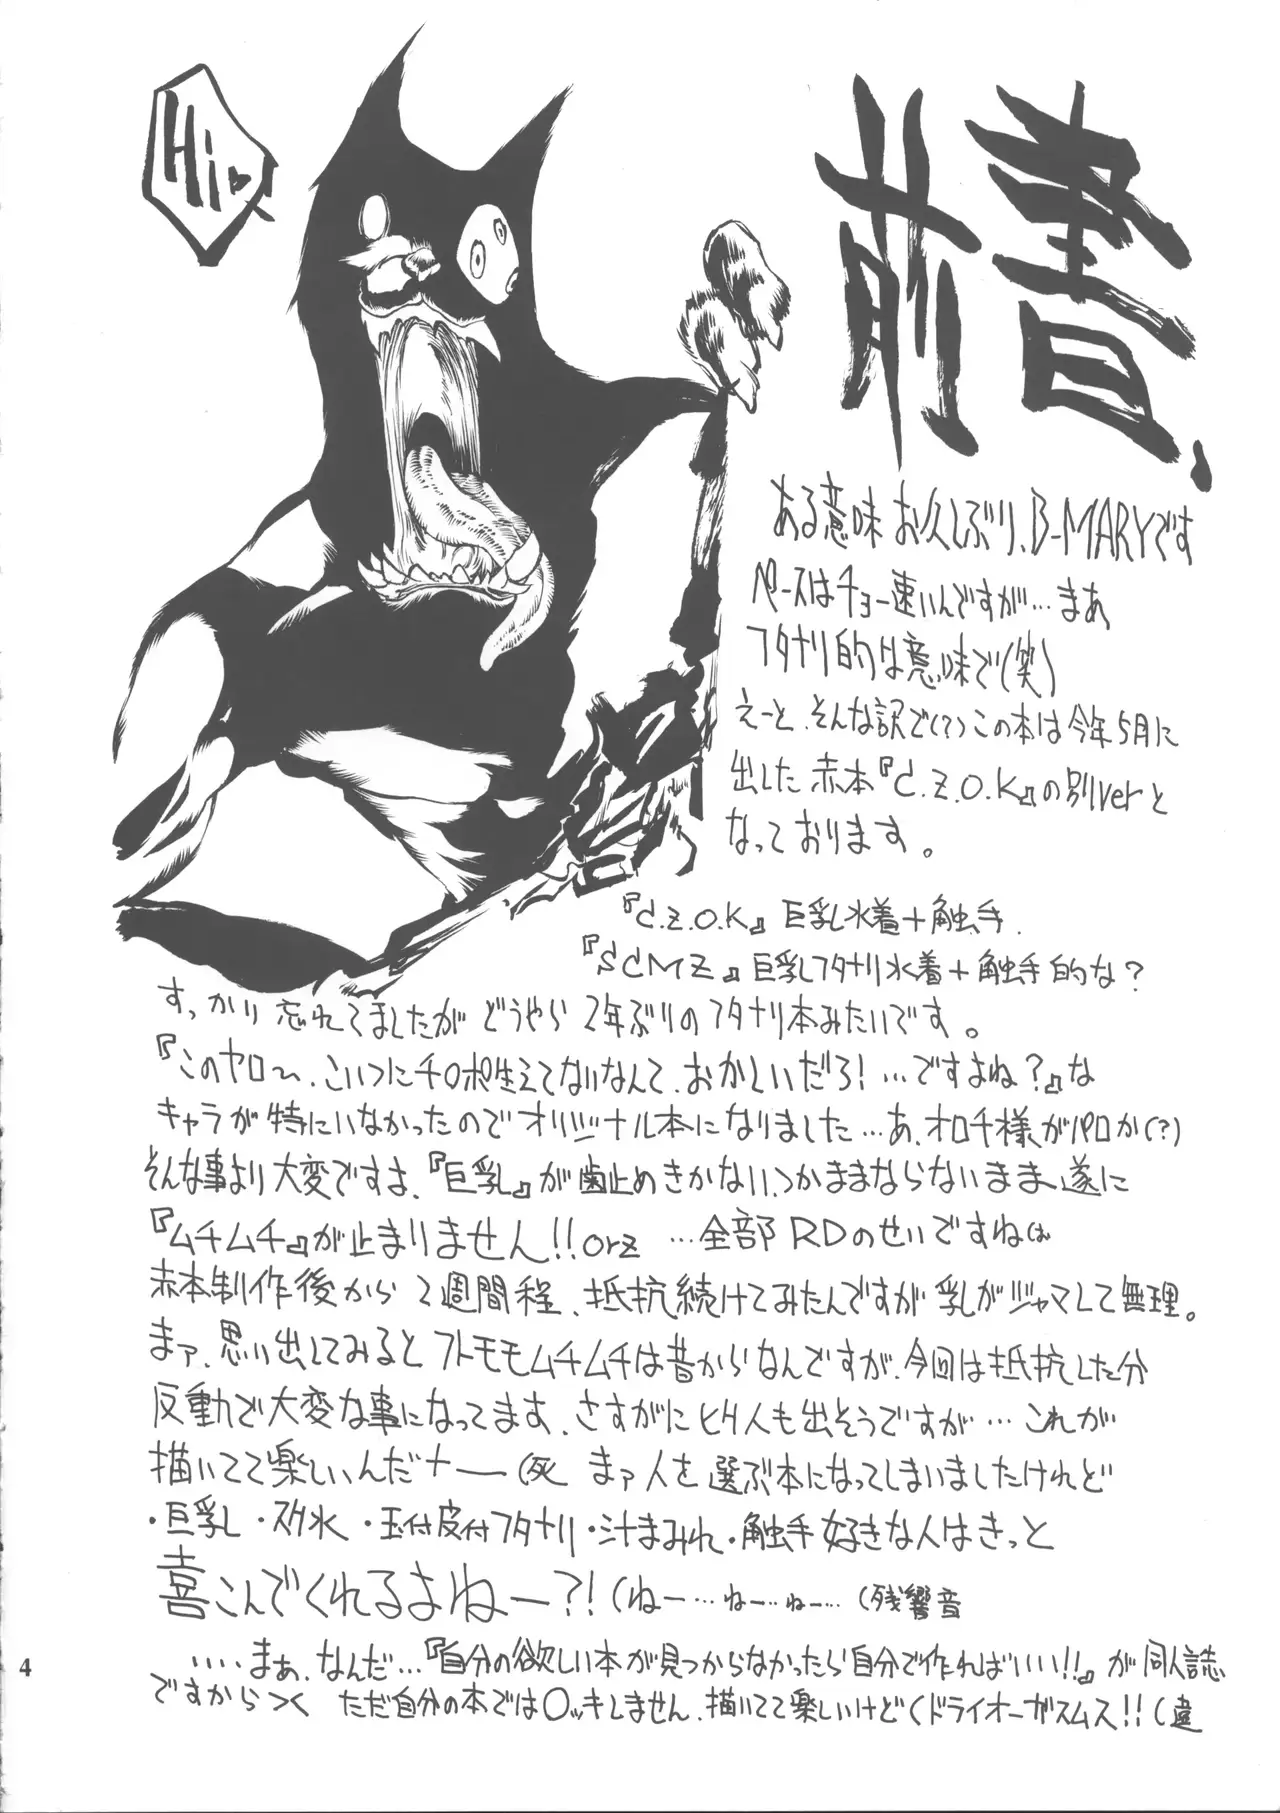 Hi♥
前書、
ある意味お久しぶり、B-MARYです
ペースはチョー速いんですが…まあ
フタナリ的な意味で(笑)
えーと、そんな訳で(?)この本は今年5月に
出した赤本『C.Z.O.K』の別verと
なっております。
『C.Z.O.K』巨乳水着+触手.
『SCMZ』巨乳フタナリ水着+触手的な?
すっかり忘れてましたがどうやら2年ぶりのフタナリ本みたいです。
『このヤロ〜、こいつにチ○ポ生えてないなんて、おかしいだろ!…ですよね?』な
キャラが特にいなかったのでオリジナル本になりました…あ、オロチ様がパロか(?)
そんな事より大変ですよ、『巨乳』が歯止めきかない、つかままならないまま遂に
『ムチムチ』が止まりません!!orz …全部RDのせいですねは
赤本制作後から2週間程、抵抗続けてみたんですが乳がジャマして無理。
まァ、思い出してみるとフトモモムチムチは昔からなんですが、今回は抵抗した分
反動で大変な事になってます、さすがにヒク人も出そうですが…これが
描いてて楽しいんだナー(死 まァ人を選ぶ本になってしまいましたけれど
・巨乳・スク水・玉付皮付フタナリ・汁まみれ・触手好きな人はきっと
喜こんでくれるよねー?!(ねー…ねー…ねー…(残響音
‥‥まぁ、なんだ…『自分の欲しい本が見つからなかったら自分で作ればいい!!』が同人誌
ですからつく ただ自分の本では○ッキしません、描いてて楽しいけど(ドライオーガズムス!!(違
4